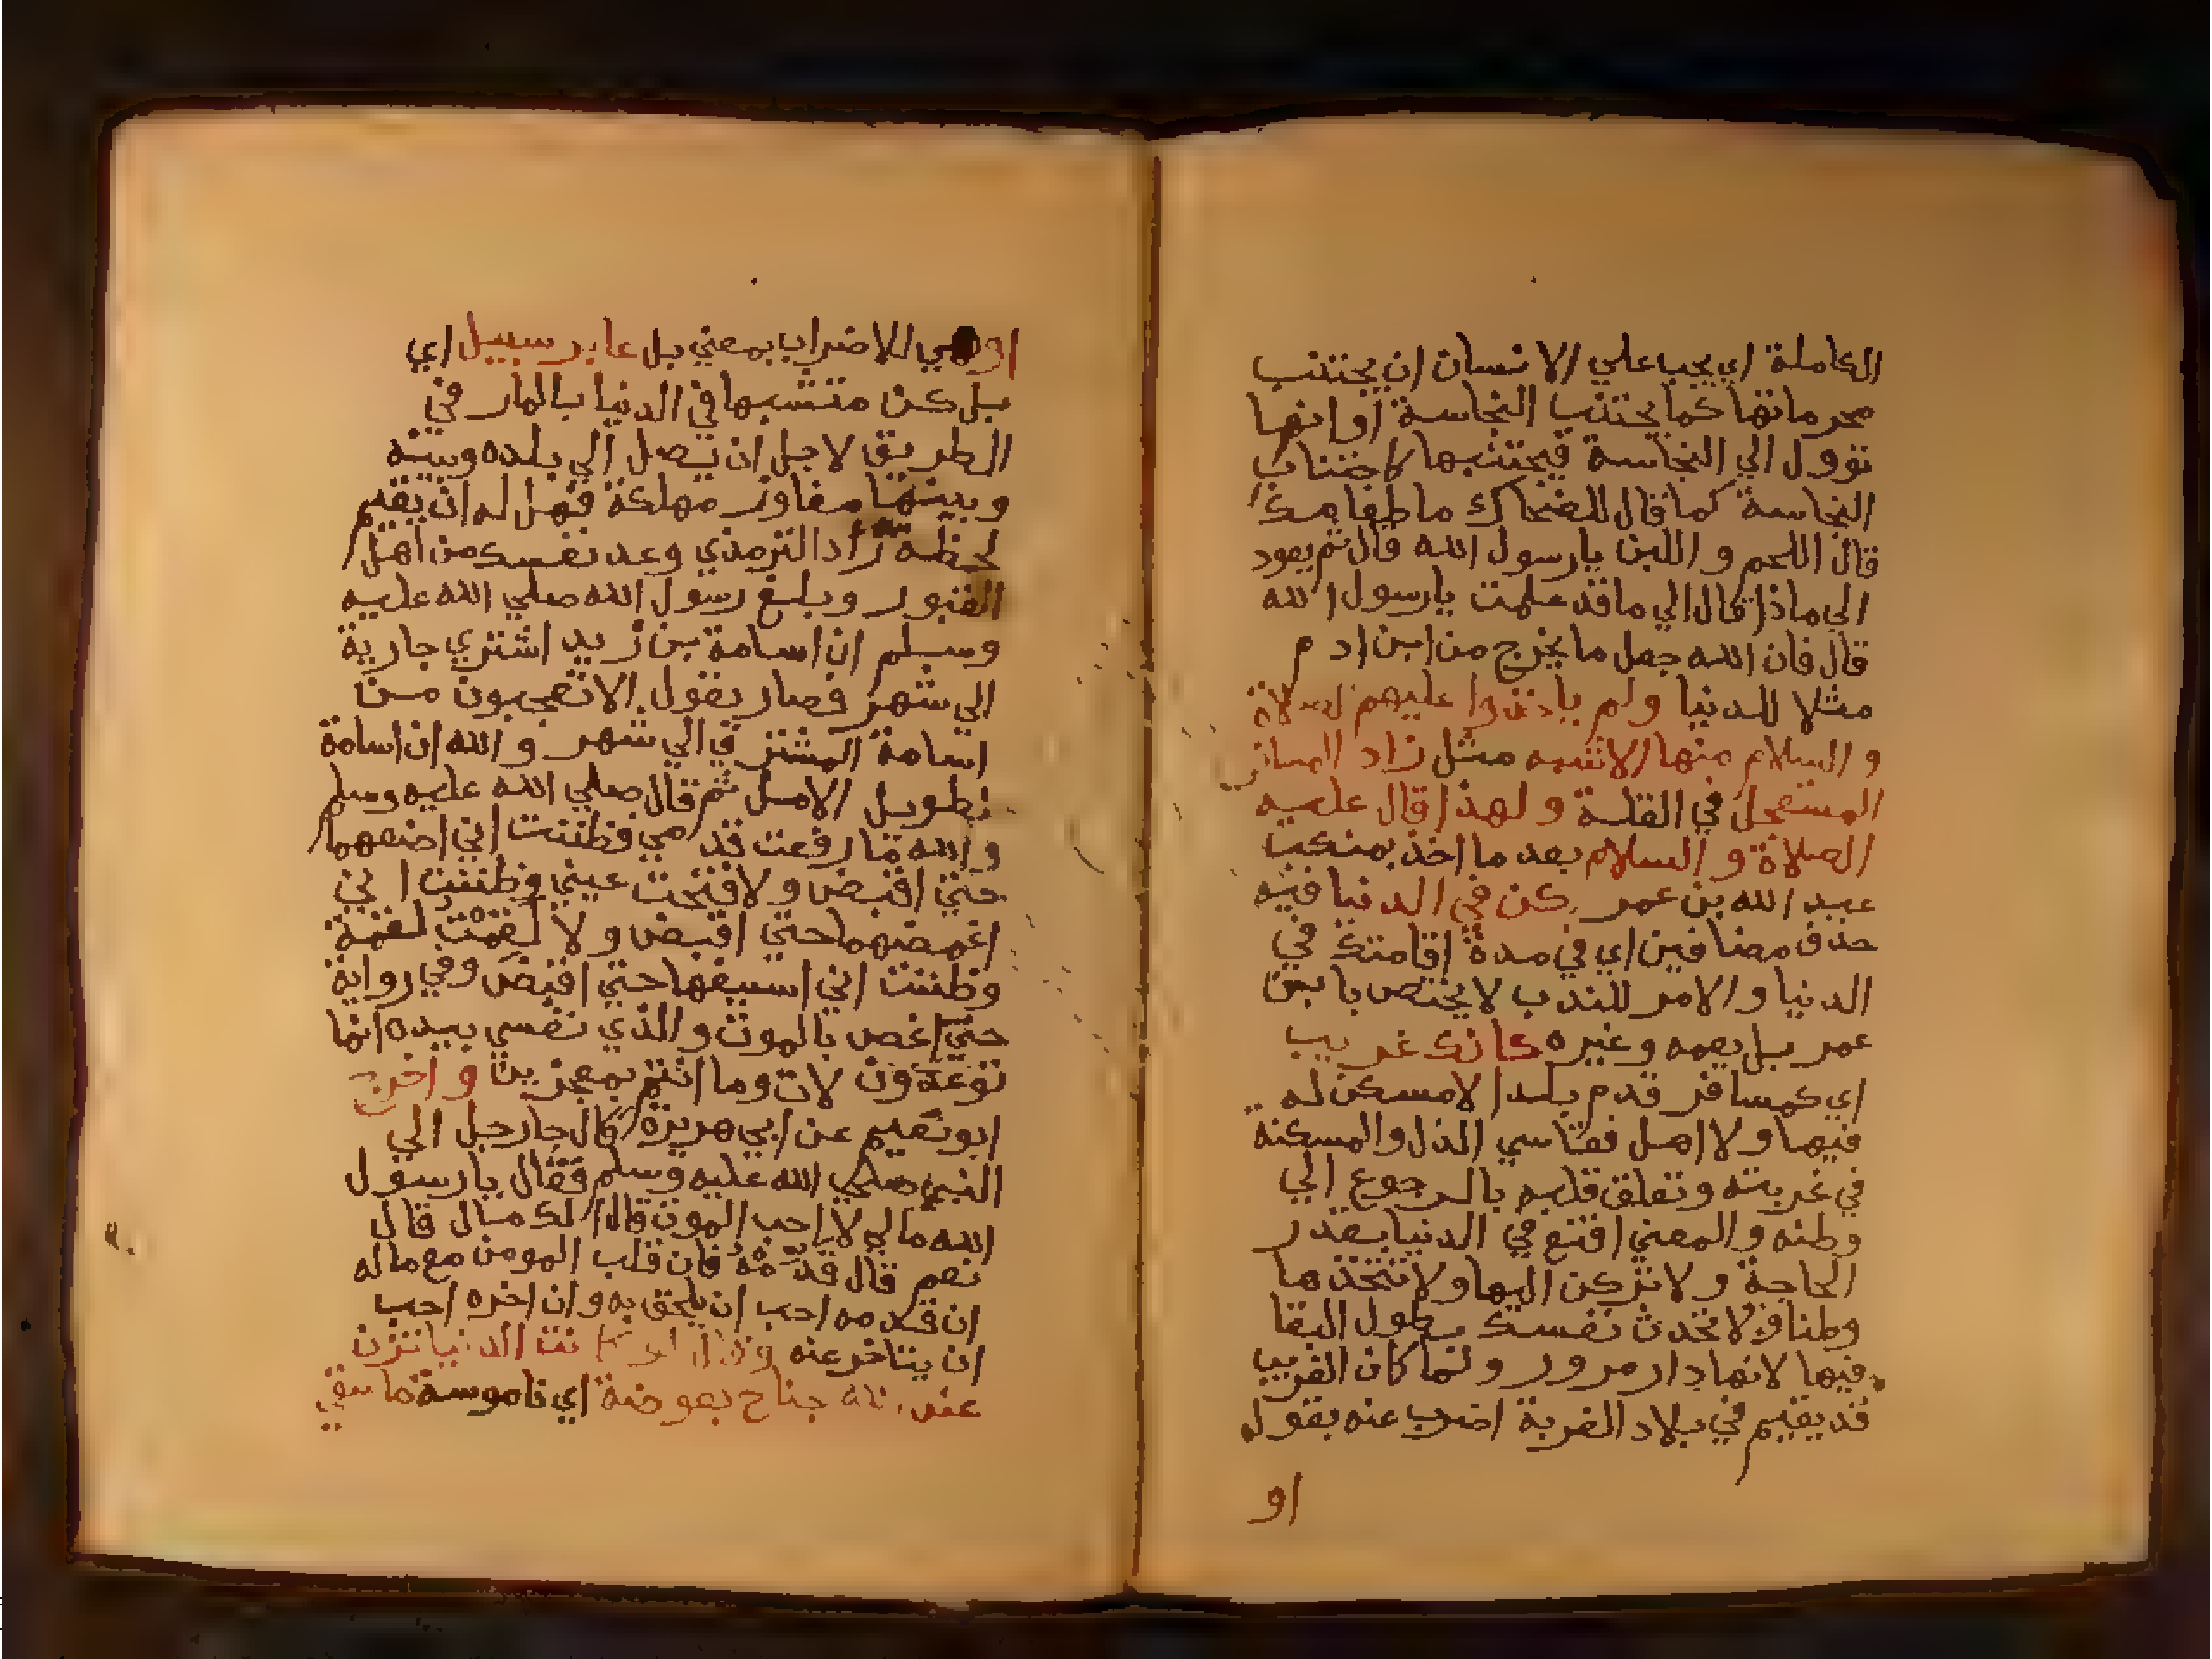 الكاملة اي يجب علي الانسان ان يجتنب
محرماتها كما يجتنب النجاسة او انها
تؤول الي النجاسة فيجتنبها كاجتناب
النجاسة كما قال للضحاك ما طعامك
قال اللحم و اللبن يارسول الله قال ثم يعود
الي ماذا قال الي ما قد علمت يارسول الله
قال فان الله جعل ما يخرج من ابن ادم
مثلا للدنيا ولم ياخذوا عليهم الصلاة
و السلام منها الا شبه مثل زاد المسافر
المستعجل في القلة و لهذا قال عليه
الصلاة و السلام بعد ما اخذ بمنكب
عبد الله بن عمر كن في الدنيا فيه
حذف مضافين اي في مدة اقامتك في
الدنيا و الامر للندب لا يختص بابن
عمر بل يعمه وغيره كانك غريب
اي كمسافر قدم بلدا لا مسكن له
فيها و لا اهل فقاسي الذل والمسكنة
في غربته وتعلق قلبه بالرجوع الي
وطنه و المعني اقنع في الدنيا بقدر
الحاجة و لا تركن اليها ولا تتخذها
وطنا و لا تحدث نفسك بطول البقا
فيها لانها دار مرور ولما كان الغريب
قد يقيم في بلاد الغربة اضرب عنه بقول
او
او هي للاضراب بمعني بل عابر سبيل اي
بل كن متشبها في الدنيا بالمار في
الطريق لاجل ان يصل الي بلده وبينه
وبينها مفاوز مهلكة فهل له ان يقيم
لحظة زاد الترمذي وعد نفسك من اهل
القبور وبلغ رسول الله صلي الله عليه
وسلم ان اسامة بن زيد اشتري جارية
الي شهر فصار يقول الا تعجبون من
اسامة المشتري الي شهر و الله ان اسامة
لطويل الامل ثم قال صلي الله عليه وسلم
و الله ما رفعت قدمي فظننت اني اضعهما
حتي اقبض ولا فتحت عيني وظننت اني
اغمضهما حتي اقبض و لا لقمت لقمة
وظننت اني اسيغها حتي اقبض وفي رواية
حتي اغص بالموت و الذي نفسي بيده انما
توعدون لات وما انتم بمعجزين و اخرج
ابو نعيم عن ابي هريرة قال جا رجل الي
النبي صلي الله عليه وسلم فقال يارسول
الله مالي لا احب الموت قال الك مال قال
نعم قال قدمه فان قلب المومن مع ماله
ان قدمه احب ان يلحق به وان اخره احب
ان يتاخر عنه وقال لو كانت الدنيا تزن
عند الله جناح بعوضة اي ناموسة ما سقي